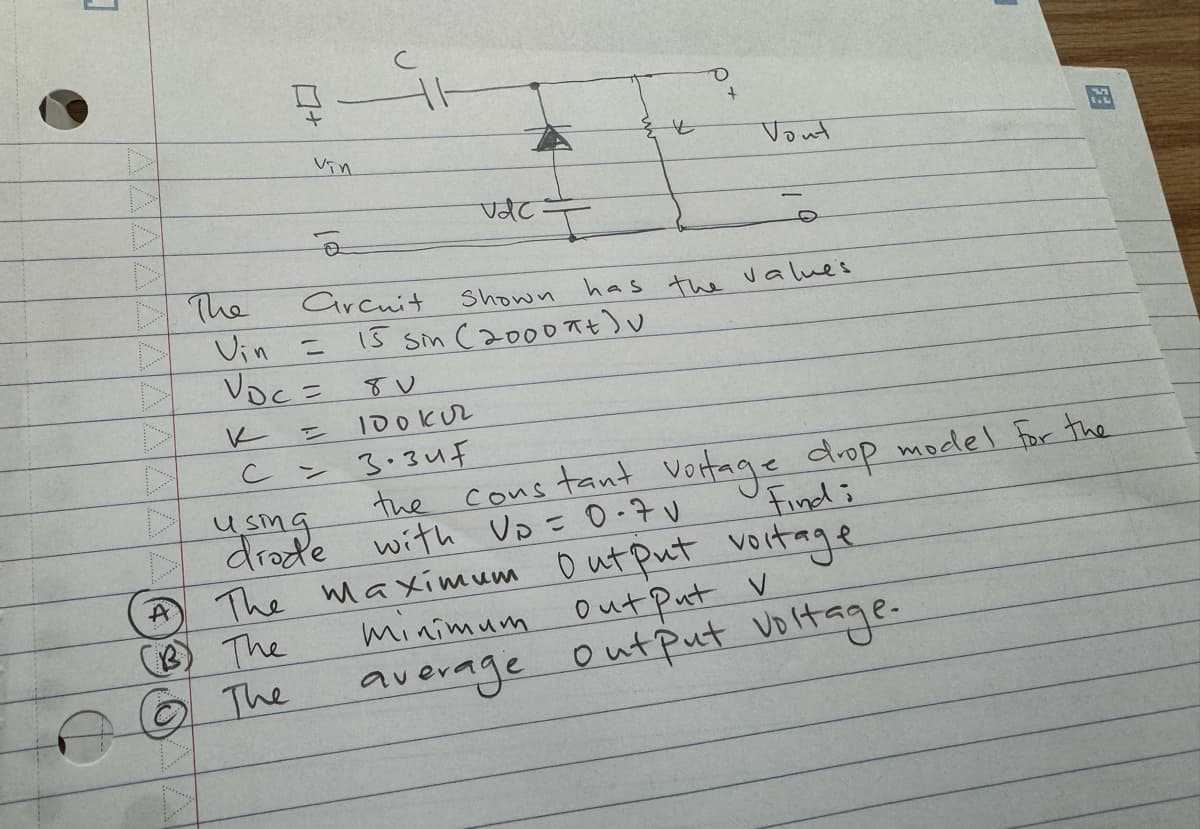 C
+
Vin
-
Vdc
K
+
Vout
-
The Circuit Shown has the values
Vin = 15 sin (2000πt) V
VDC = 8V
K = 100KΩ
C = 3.3uF
using the constant voltage drop model For the
diode with VD = 0.7V Find;
A The maximum output voltage
B The minimum output V
C The average output voltage.